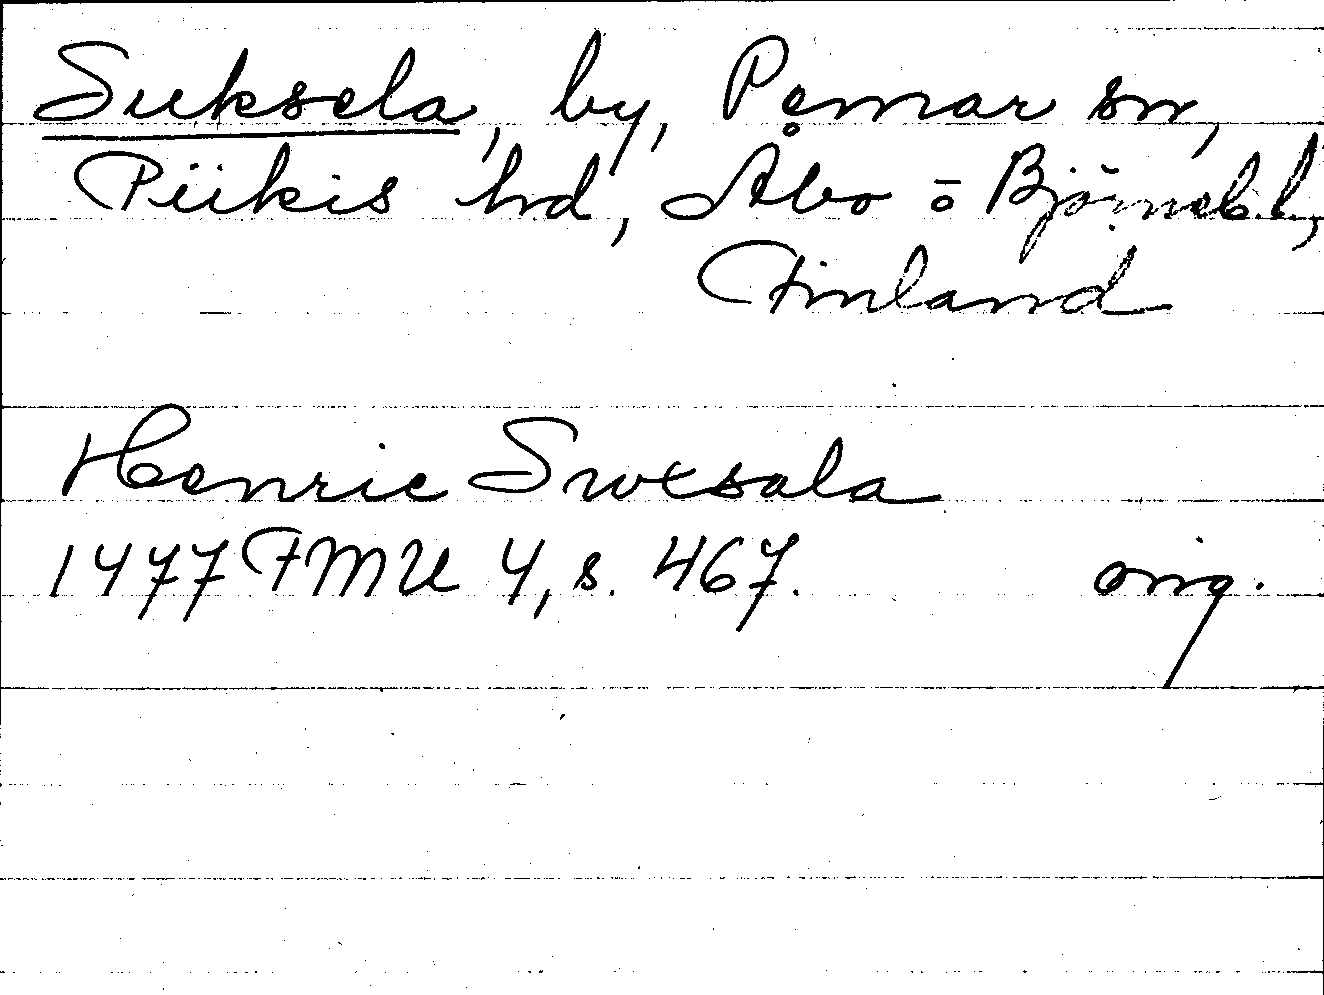 Suksela, by, Pemar sn,
Piikis hd, Åbo o Björneb. l,
Finland
Henric Swxsala
1477 FMU 4, s. 467. orig.